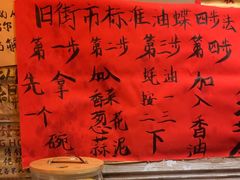 旧街市标准油蝶四步法
第一步
先拿
一个碗
第二步
加入香菜
葱蒜泥
第三步
蚝油一
按二下
第四步
加入
香油